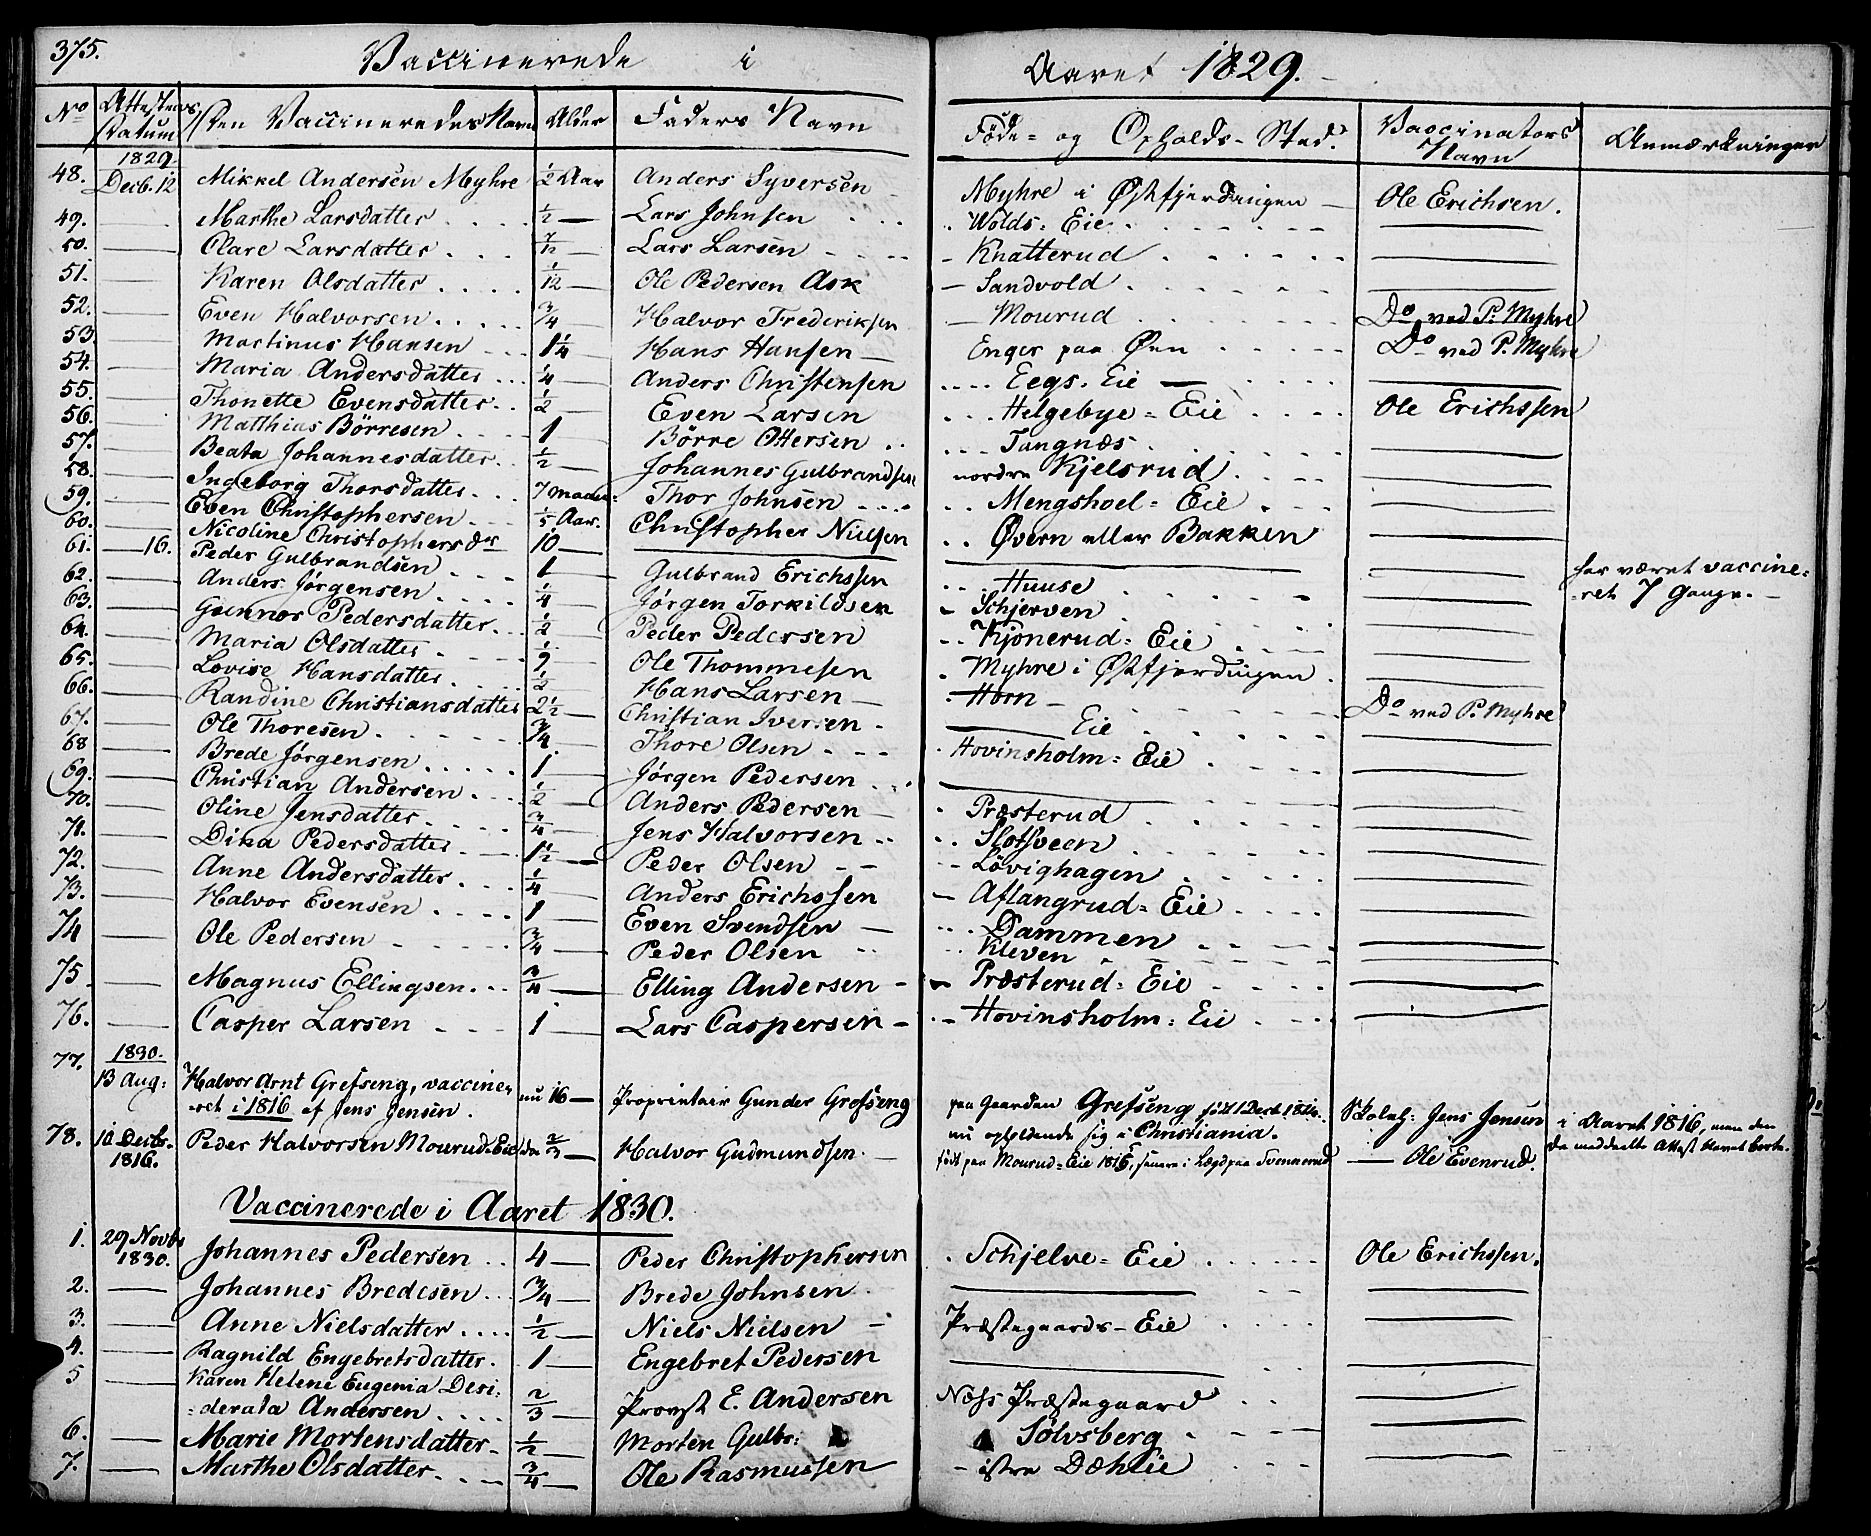 375. Vaccinerede i Aaret 1829.
No Attestens Datum Den Vaccineredes Navn Alder Faders Navn Føde- og Opholds-Sted. Vaccinators Navn Anmærkninger
48. 1829 Decb. 12 Mikkel Andersen Myhre ½ Aar Anders Syversen Myhre i Østfjerdingen Ole Erichsen.
49. — Marthe Larsdatter ½ — Lars Johnsen Wolds-Eie —
50. — Clare Larsdatter — Lars Larsen Knatterud —
51. — Karen Olsdatter 1/12 — Ole Pedersen Ask Sandvold —
52. — Even Halvorsen ¾ — Halvor Frederiksen Mourud Do ved P. Myhre
53. — Martinus Hansen 1¼ — Hans Hansen Enger paa Øen Do ved P. Myhre
54. — Maria Andersdatter ¼ — Anders Christensen Eegs-Eie —
55. — Thonette Evensdatter ½ — Even Larsen Helgebye-Eie Ole Erichssen
56. — Matthias Börresen 1 — Börre Ottersen Tangnæs —
57. — Beata Johannesdatter ½ — Johannes Gulbrandsen nordre Kjelsrud —
58. — Ingeborg Thorsdatter 7 maan: Thor Johnsen Mengshoel-Eie —
59. — Even Christophersen 1/5 Aar. Christopher Nielsen Øvern eller Bakken —
60. — Nicoline Christophersdr 10 — — — — har været vaccine-
-ret 7 Gange.
61. — 16. Peder Gulbrandsen 1 — Gulbrand Erichssen Huuse —
62. — Anders Jörgensen ¼ — Jörgen Torkildsen Schjerven —
63. — Gunnor Pedersdatter ½ — Peder Pedersen Kjonerud-Eie —
64. — Maria Olsdatter — Ole Thommesen Myhre i Østfjerdingen —
65. — Lovise Hansdatter ½ — Hans Larsen Horn —
66. — Randine Christiansdatter 2½ — Christian Iversen — Eie Do ved P. Myhre
67. — Ole Thoresen ¾ — Thore Olsen Hovinsholm-Eie —
68 — Brede Jörgensen 1 — Jörgen Pedersen — —
69. — Christian Andersen ½ — Anders Pedersen Præsterud —
70. — Oline Jensdatter ¾ — Jens Halvorsen Slotsveen —
71. — Dina Pedersdatter 1½ — Peder Olsen Lövighagen —
72. — Anne Andersdatter ¼ — Anders Erichssen Aflangrud-Eie —
73. — Halvor Evensen 1 — Even Svendsen Dammen —
74 — Ole Pedersen ¾ — Peder Olsen Kleven —
75. — Magnus Ellingsen ¾ — Elling Andersen Præsterud-Eie —
76. — Casper Larsen 1 — Lars Caspersen Hovinsholm-Eie —
77. 1830. 13 Aug: Halvor Arnt Grefseng, vaccine-
-ret i 1816 af Jens Jensen. nu 16 — Proprietair Gunder Grefseng paa Gaarden Grefseng født 1 Decb. 1814.
nu opholdende sig i Christiania. Skoleh: Jens Jensen i Aaret 1816, men den
da meddeelte Attest blevet borte.
78. 10 Decb. 1816. Peder Halvorsen Mourud-Eie Halvor Gudmundsen født paa Mourud-Eie 1816, senere i Lægd paa Svennerud — Ole Evenrud.
Vaccinerede i Aaret 1830.
1. 29 Novbr 1830. Johannes Pedersen 4 — Peder Christophersen Schjelve-Eie Ole Erichssen.
2. — Johannes Bredesen ¾ — Brede Johnsen — —
3. — Anne Nielsdatter ½ — Niels Nielsen Præstegaards-Eie —
4. — Ragnild Engebretsdatter 1 — Engebret Pedersen — —
5 — Karen Helene Eugenia Desi-
-derata Andersen 2/3 — Provst E. Andersen Næs Præstegaard —
6. — Marie Mortensdatter ½ — Morten Gulbr: Sölvsberg —
7. — Marthe Olsdatter ¾ — Ole Rasmussen istre Dæhlie —